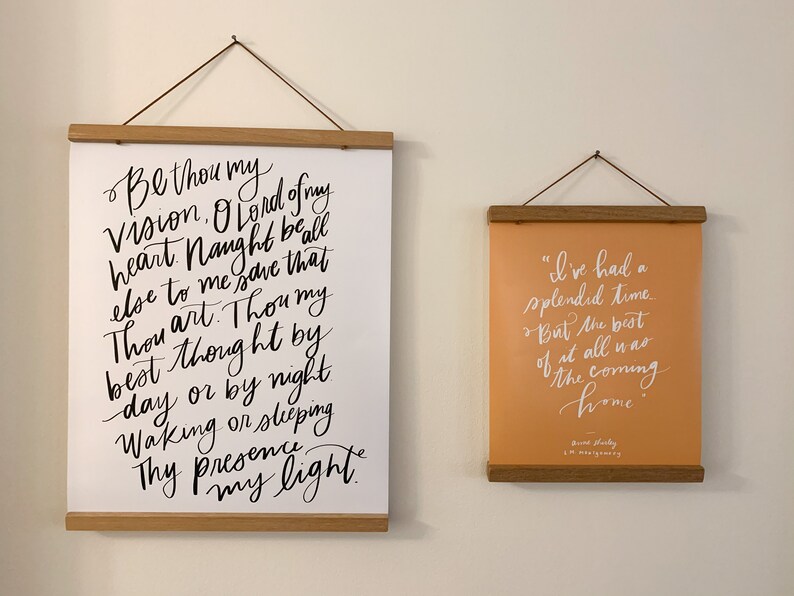 Be thou my
vision, O Lord of my
heart. Naught be all
else to me save that
Thou art. Thou my
best thought by
day or by night.
Waking or sleeping
Thy presence
my light.
"I've had a
splendid time..
But the best
of it all was
the coming
home"
—
Anne Shirley
L.M. Montgomery